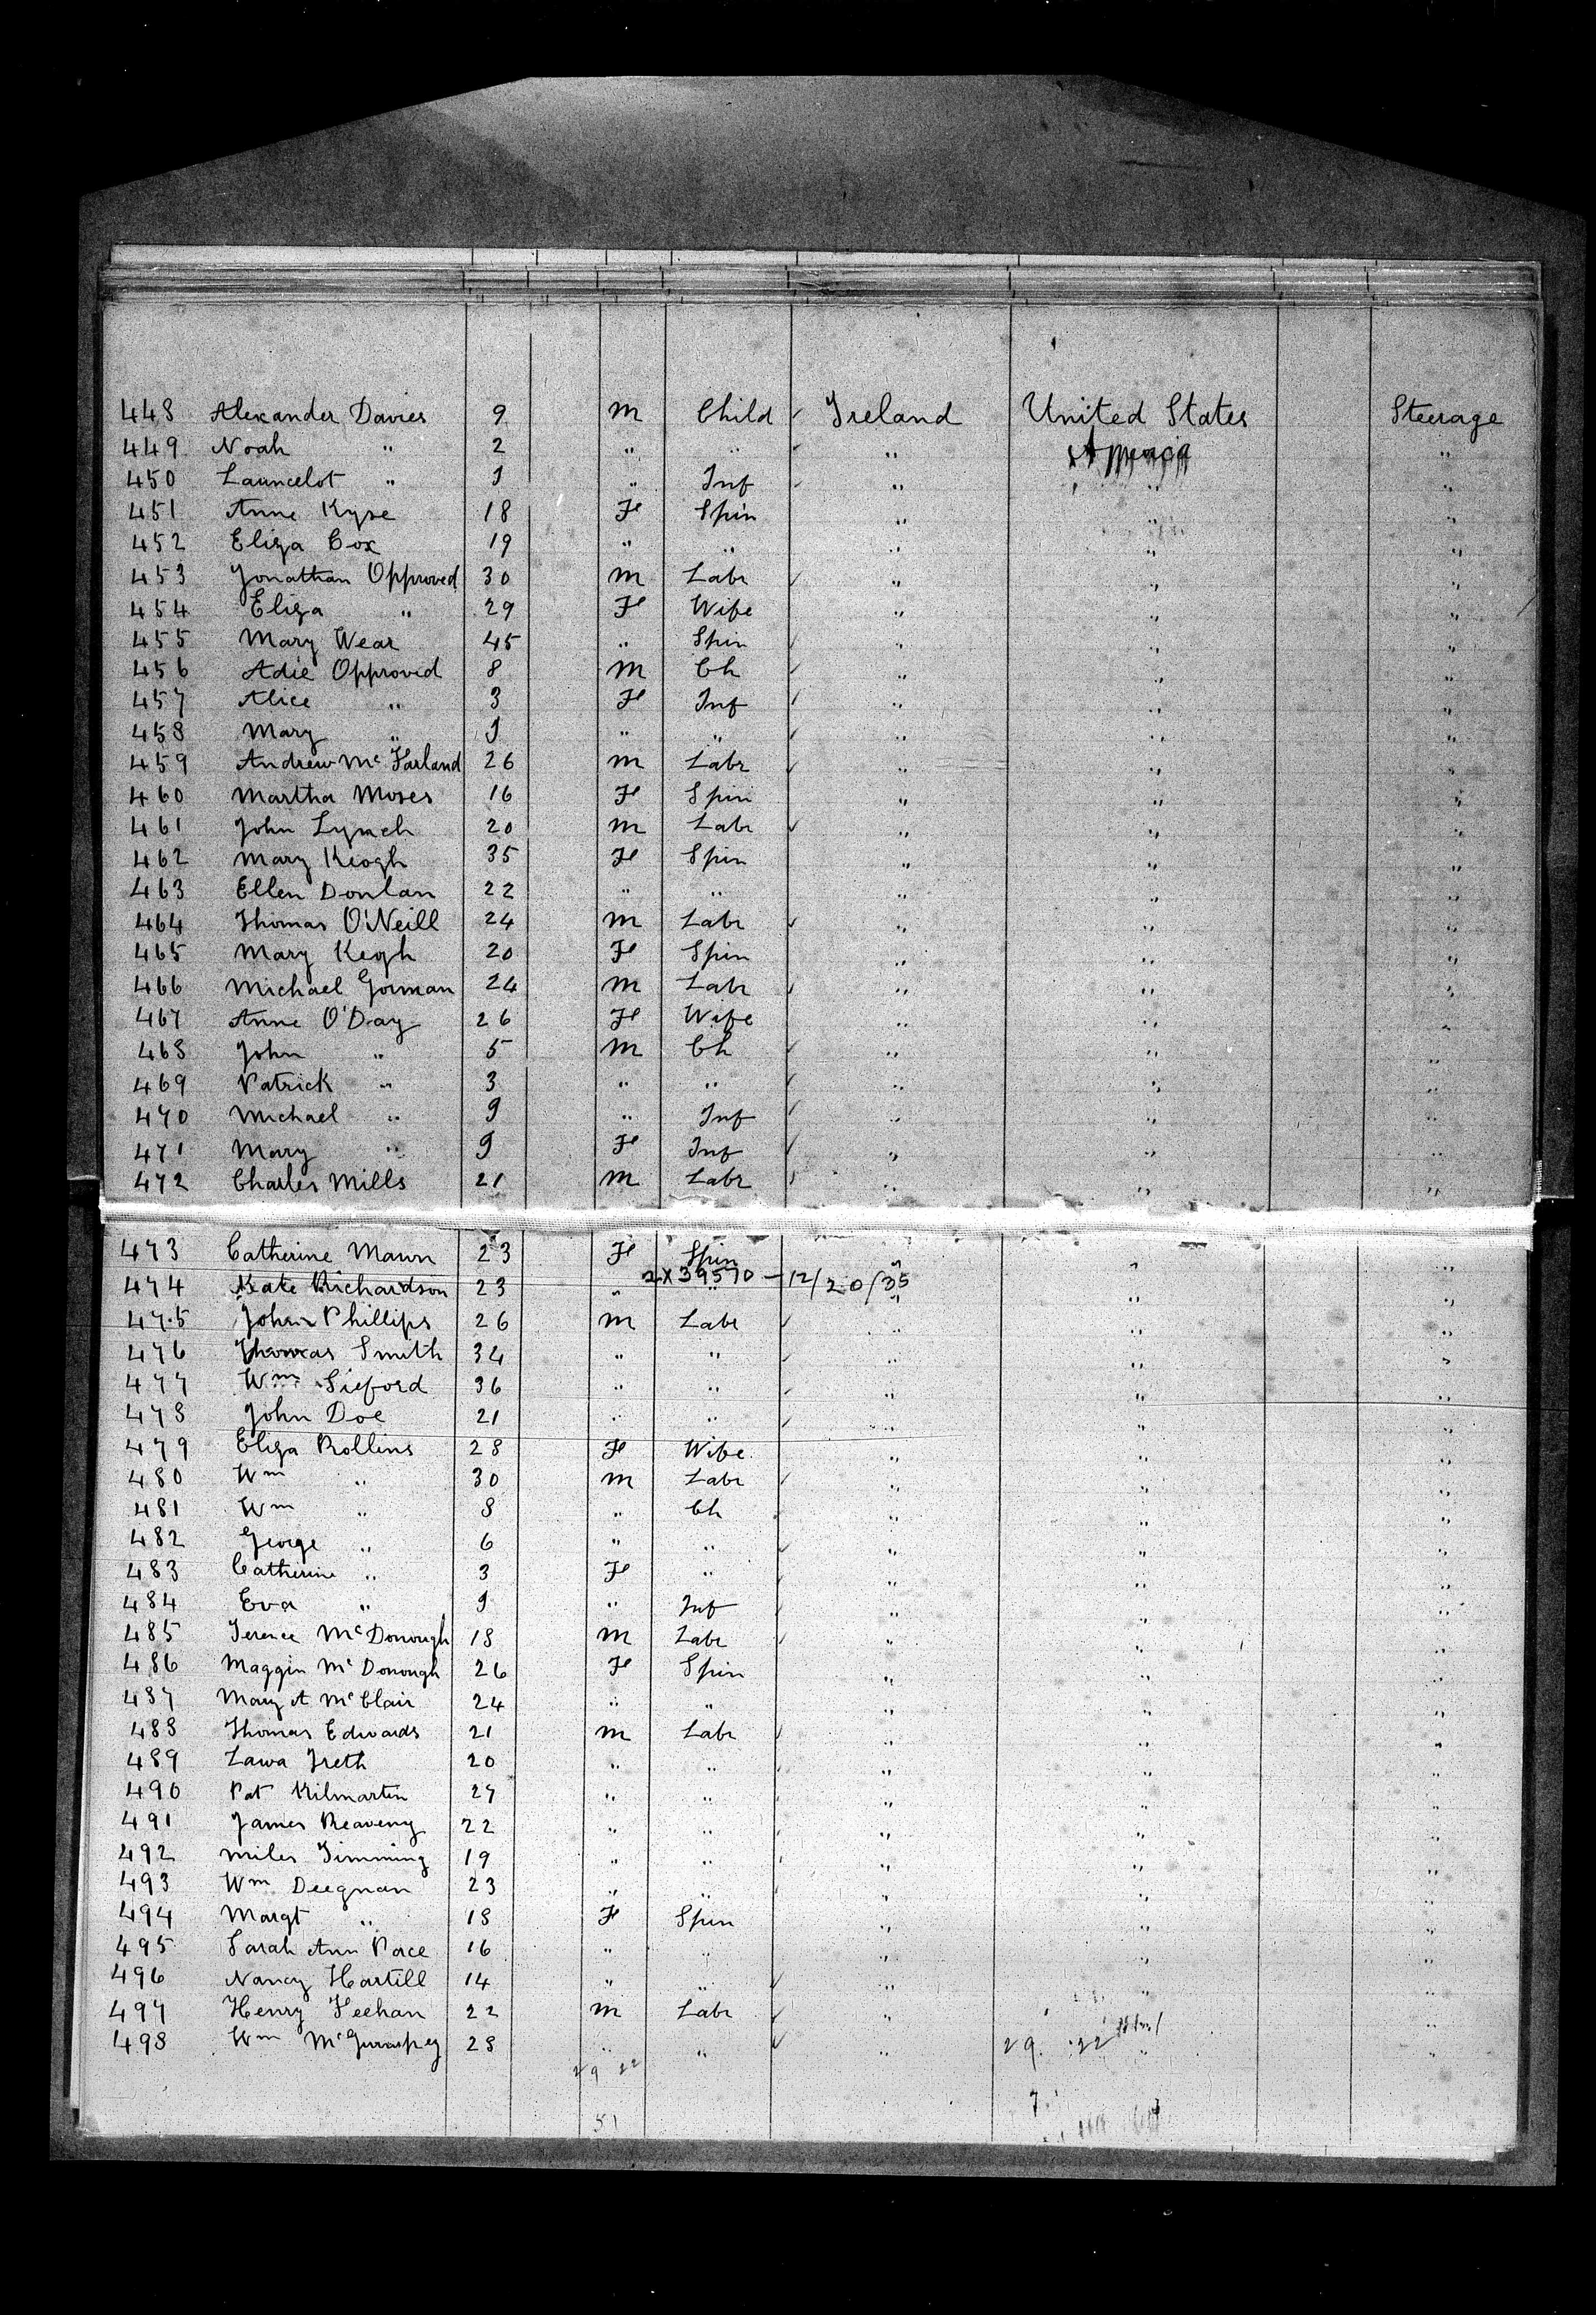 448 Alexander Davies 9 M Child Ireland United States Steerage
449 Noah " 2 " " " "
450 Launcelot " 9 " Inf " " "
451 Anne Kyse 18 F Spin " " "
452 Eliza Cox 19 " " " " "
453 Jonathan Opproved 30 M Labr " " "
454 Eliza " 29 F Wife " " "
455 Mary Wear 45 " Spin " " "
456 Adie Opproved 8 M Ch " " "
457 Alice " 3 F Inf " " "
458 Mary " 9 " " " " "
459 Andrew McFarland 26 M Labr " " "
460 Martha Moses 16 F Spin " " "
461 John Lynch 20 M Labr " " "
462 Mary Keogh 35 F Spin " " "
463 Ellen Donlan 22 " " " " "
464 Thomas O'Neill 24 M Labr " " "
465 Mary Keogh 20 F Spin " " "
466 Michael Gorman 24 M Labr " " "
467 Anne O'Day 26 F Wife " " "
468 John " 5 M Ch " " "
469 Patrick " 3 " " " " "
470 Michael " 9 " Inf " " "
471 Mary " 9 F Inf " " "
472 Charles Mills 21 M Labr " " "
473 Catherine Mawn 23 F Spin " " "
2X39570 - 12/20/35
474 Kate Richardson 23 " " " " "
475 John Phillips 26 M Labr " " "
476 Thomas Smith 34 " " " " "
477 Wm Sieford 36 " " " " "
478 John Doe 21 " " " " "
479 Eliza Rollins 28 F Wife " " "
480 Wm " 30 M Labr " " "
481 Wm " 8 " Ch " " "
482 George " 6 " " " " "
483 Catherine " 3 F " " " "
484 Eva " 9 " Inf " " "
485 Terence McDonough 18 M Labr " " "
486 Maggin McDonough 26 F Spin " " "
487 Mary A McClair 24 " " " " "
488 Thomas Edwards 21 M Labr " " "
489 Lawa Treth 20 " " " " "
490 Pat Kilmartin 27 " " " " "
491 James Reaveny 22 " " " " "
492 Miles Timming 19 " " " " "
493 Wm Deegnan 23 " " " " "
494 Margt " 18 F Spin " " "
495 Sarah Ann Pace 16 " " " " "
496 Nancy Hartill 14 " " " " "
497 Henry Feehan 22 M Labr " " "
498 Wm 28 " " " " "
29 22
29 22
51